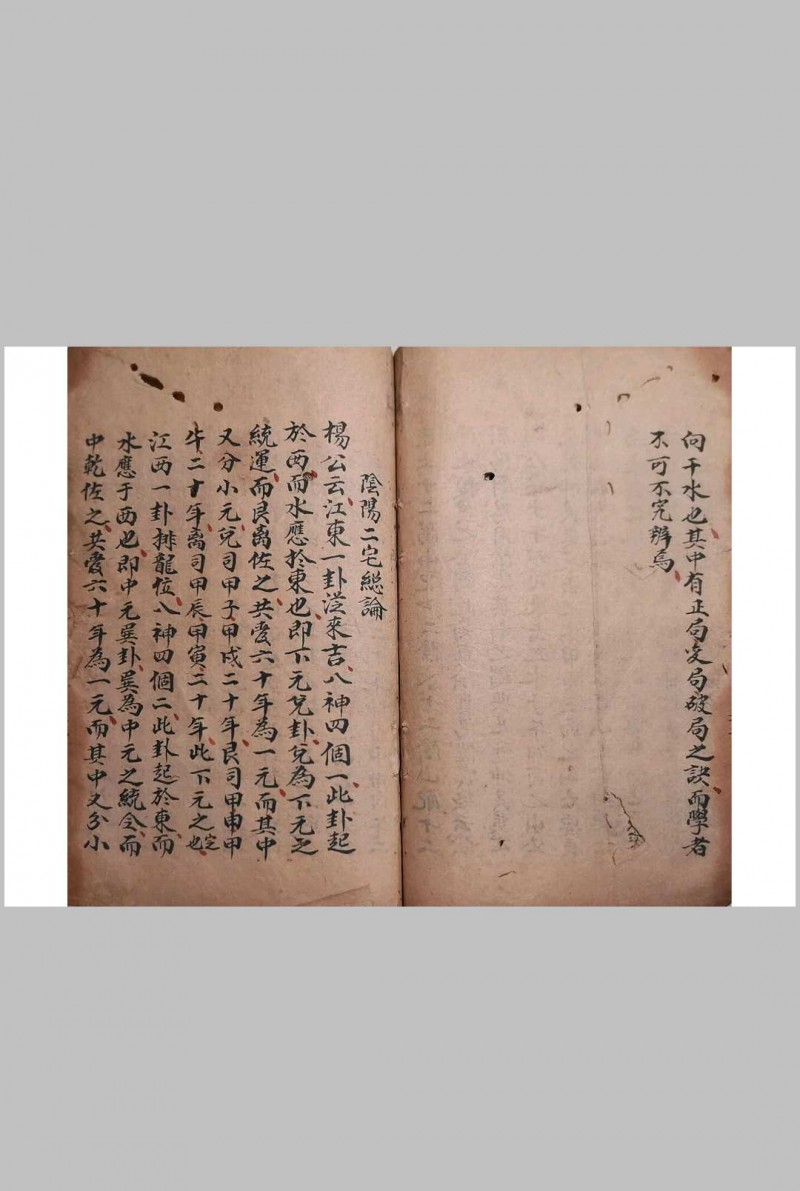 向干水也其中有正局变局破局之訣而學者
不可不究辨焉
陰陽二宅總論
楊公云江東一卦從來吉八神四個一此卦起
於西而水應於東也即下元兌卦兌為下元之
統運而艮离佐之共爱六十年為一元而其中
又分小元兌司甲子甲戍二十年艮司甲申甲
午二十年离司甲辰甲寅二十年此下元之定也
江西一卦排龍位八神四個二此卦起於東而
水應于西也即中元巽卦巽為中元之統令而
中乾佐之共爱六十年為一元而其中又分小